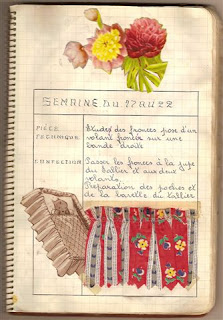 SEMAINE DU 17 AU 22
PIÈCE
TECHNIQUE
Etudes des fronces pose d'un
volant froncé sur une
bande droite
CONFECTION
Passer les fronces à la jupe
du tablier et aux deux
volants,
Préparation des poches et
de la bavette du tablier